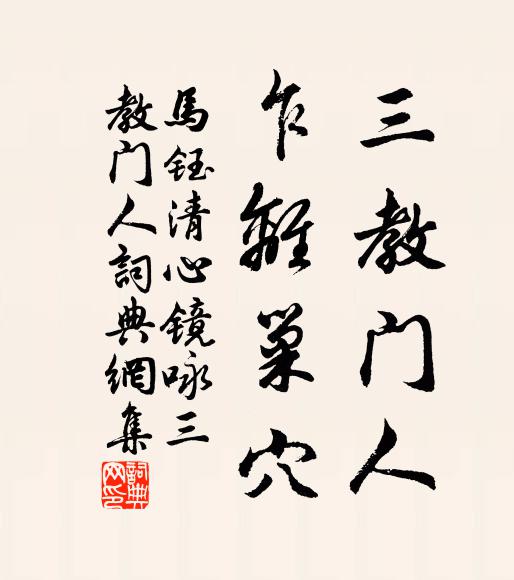 三教门人
乍離巢穴
馬鈺清心镜咏三
教门人詞典網集
詞典网印